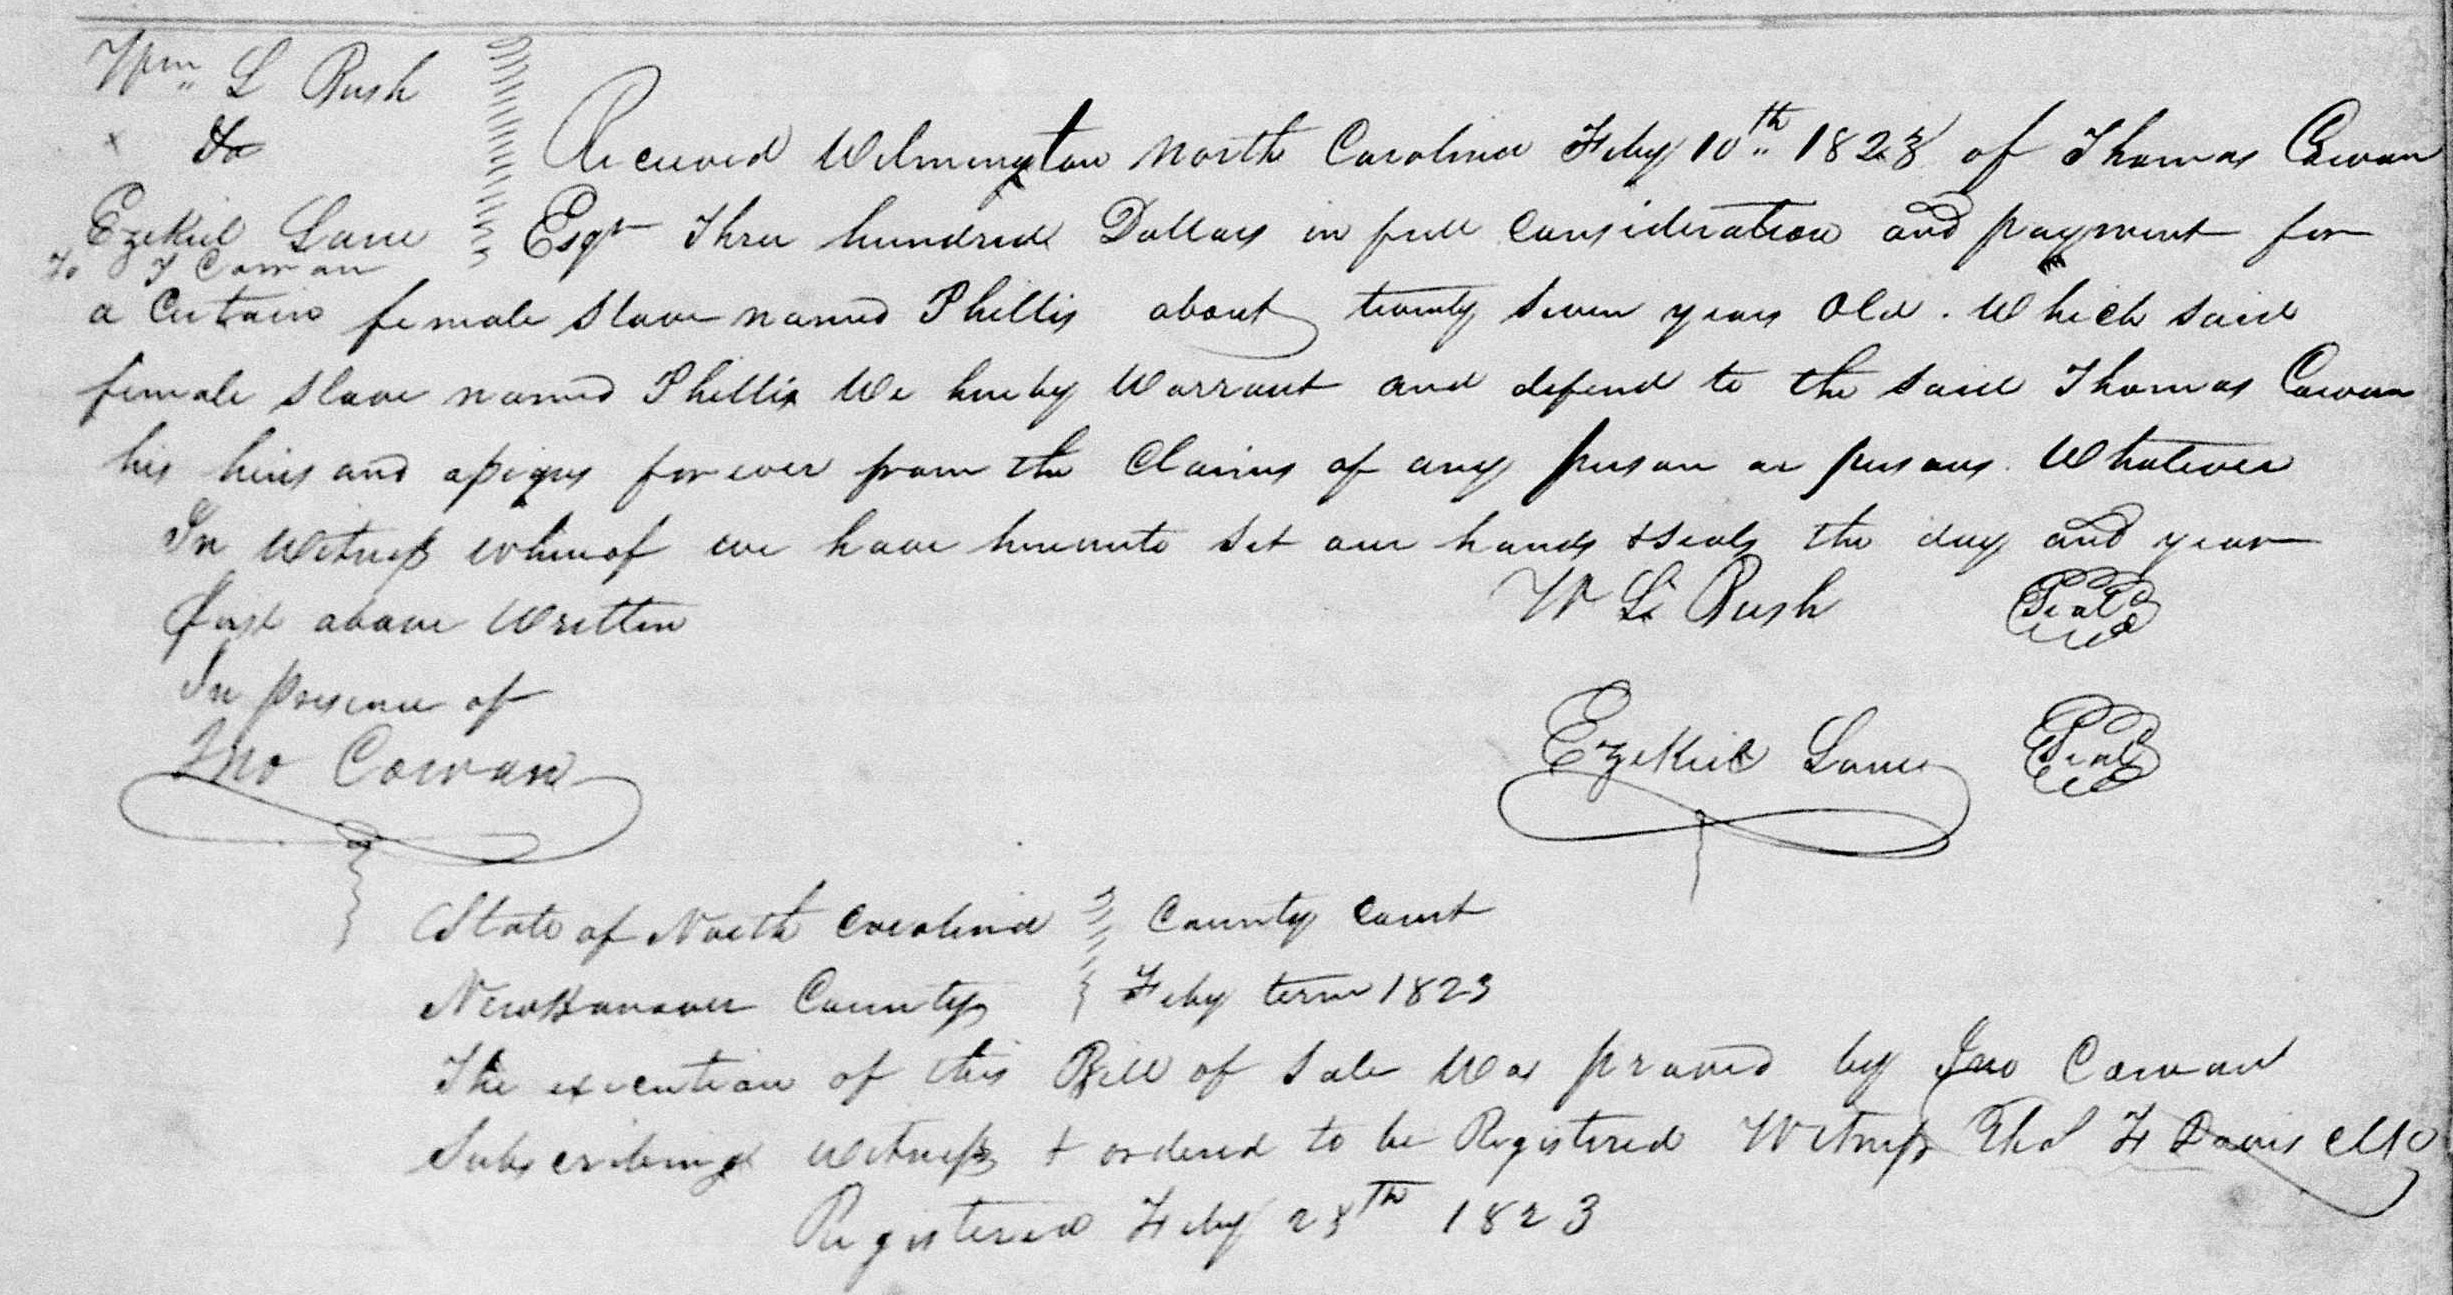 Wm L Rush
To
Ezekiel Lane
To T Cowan
Received Wilmington North Carolina Feby 10th 1823 of Thomas Cowan
Esqr Three hundred Dollars in full consideration and payment for
a Certain female Slave named Phillis about twenty seven years Old. Which said
female slave named Phillis We hereby Warrant and defend to the said Thomas Cowan
his heirs and assigns forever from the Claims of any person or persons Whatever
In Witness whereof we have hereunto set our hands & seals the day and year
first above Written
W L Rush Seal
In presence of
Jno Cowan
Ezekiel Lane Seal
State of North Carolina County Court
New Hanover County Feby term 1823
The execution of this Bill of Sale Was proved by Jno Cowan
Subscribing witness & ordered to be Registered Witness Thos F Davis Clk
Registered Feby 28th 1823